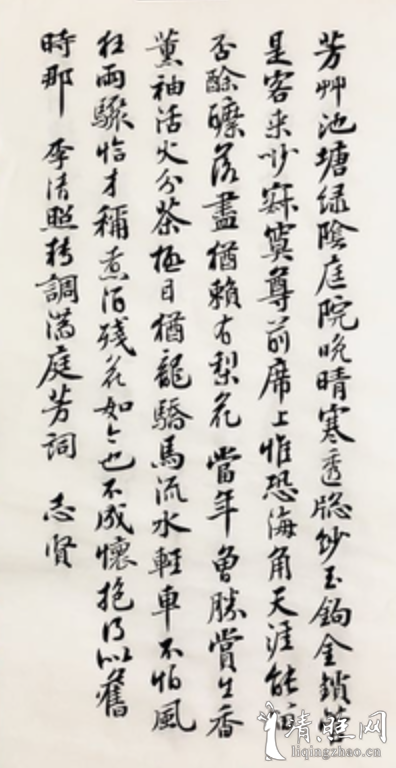 芳艸池塘绿陰庭院晚晴寒透窓纱玉鉤金鎖管
是客来吵寂寞尊前席上惟恐海角天涯能留
否酴醾落盡猶賴有梨花當年曾勝賞生香
薰袖活火分茶極目猶龍驕馬流水輕車不怕風
狂雨驟恰才稱煮酒残花如今也不成懷抱得似舊
時那 李清照轉調满庭芳詞 志贤
清照网
liqingzhao.cn